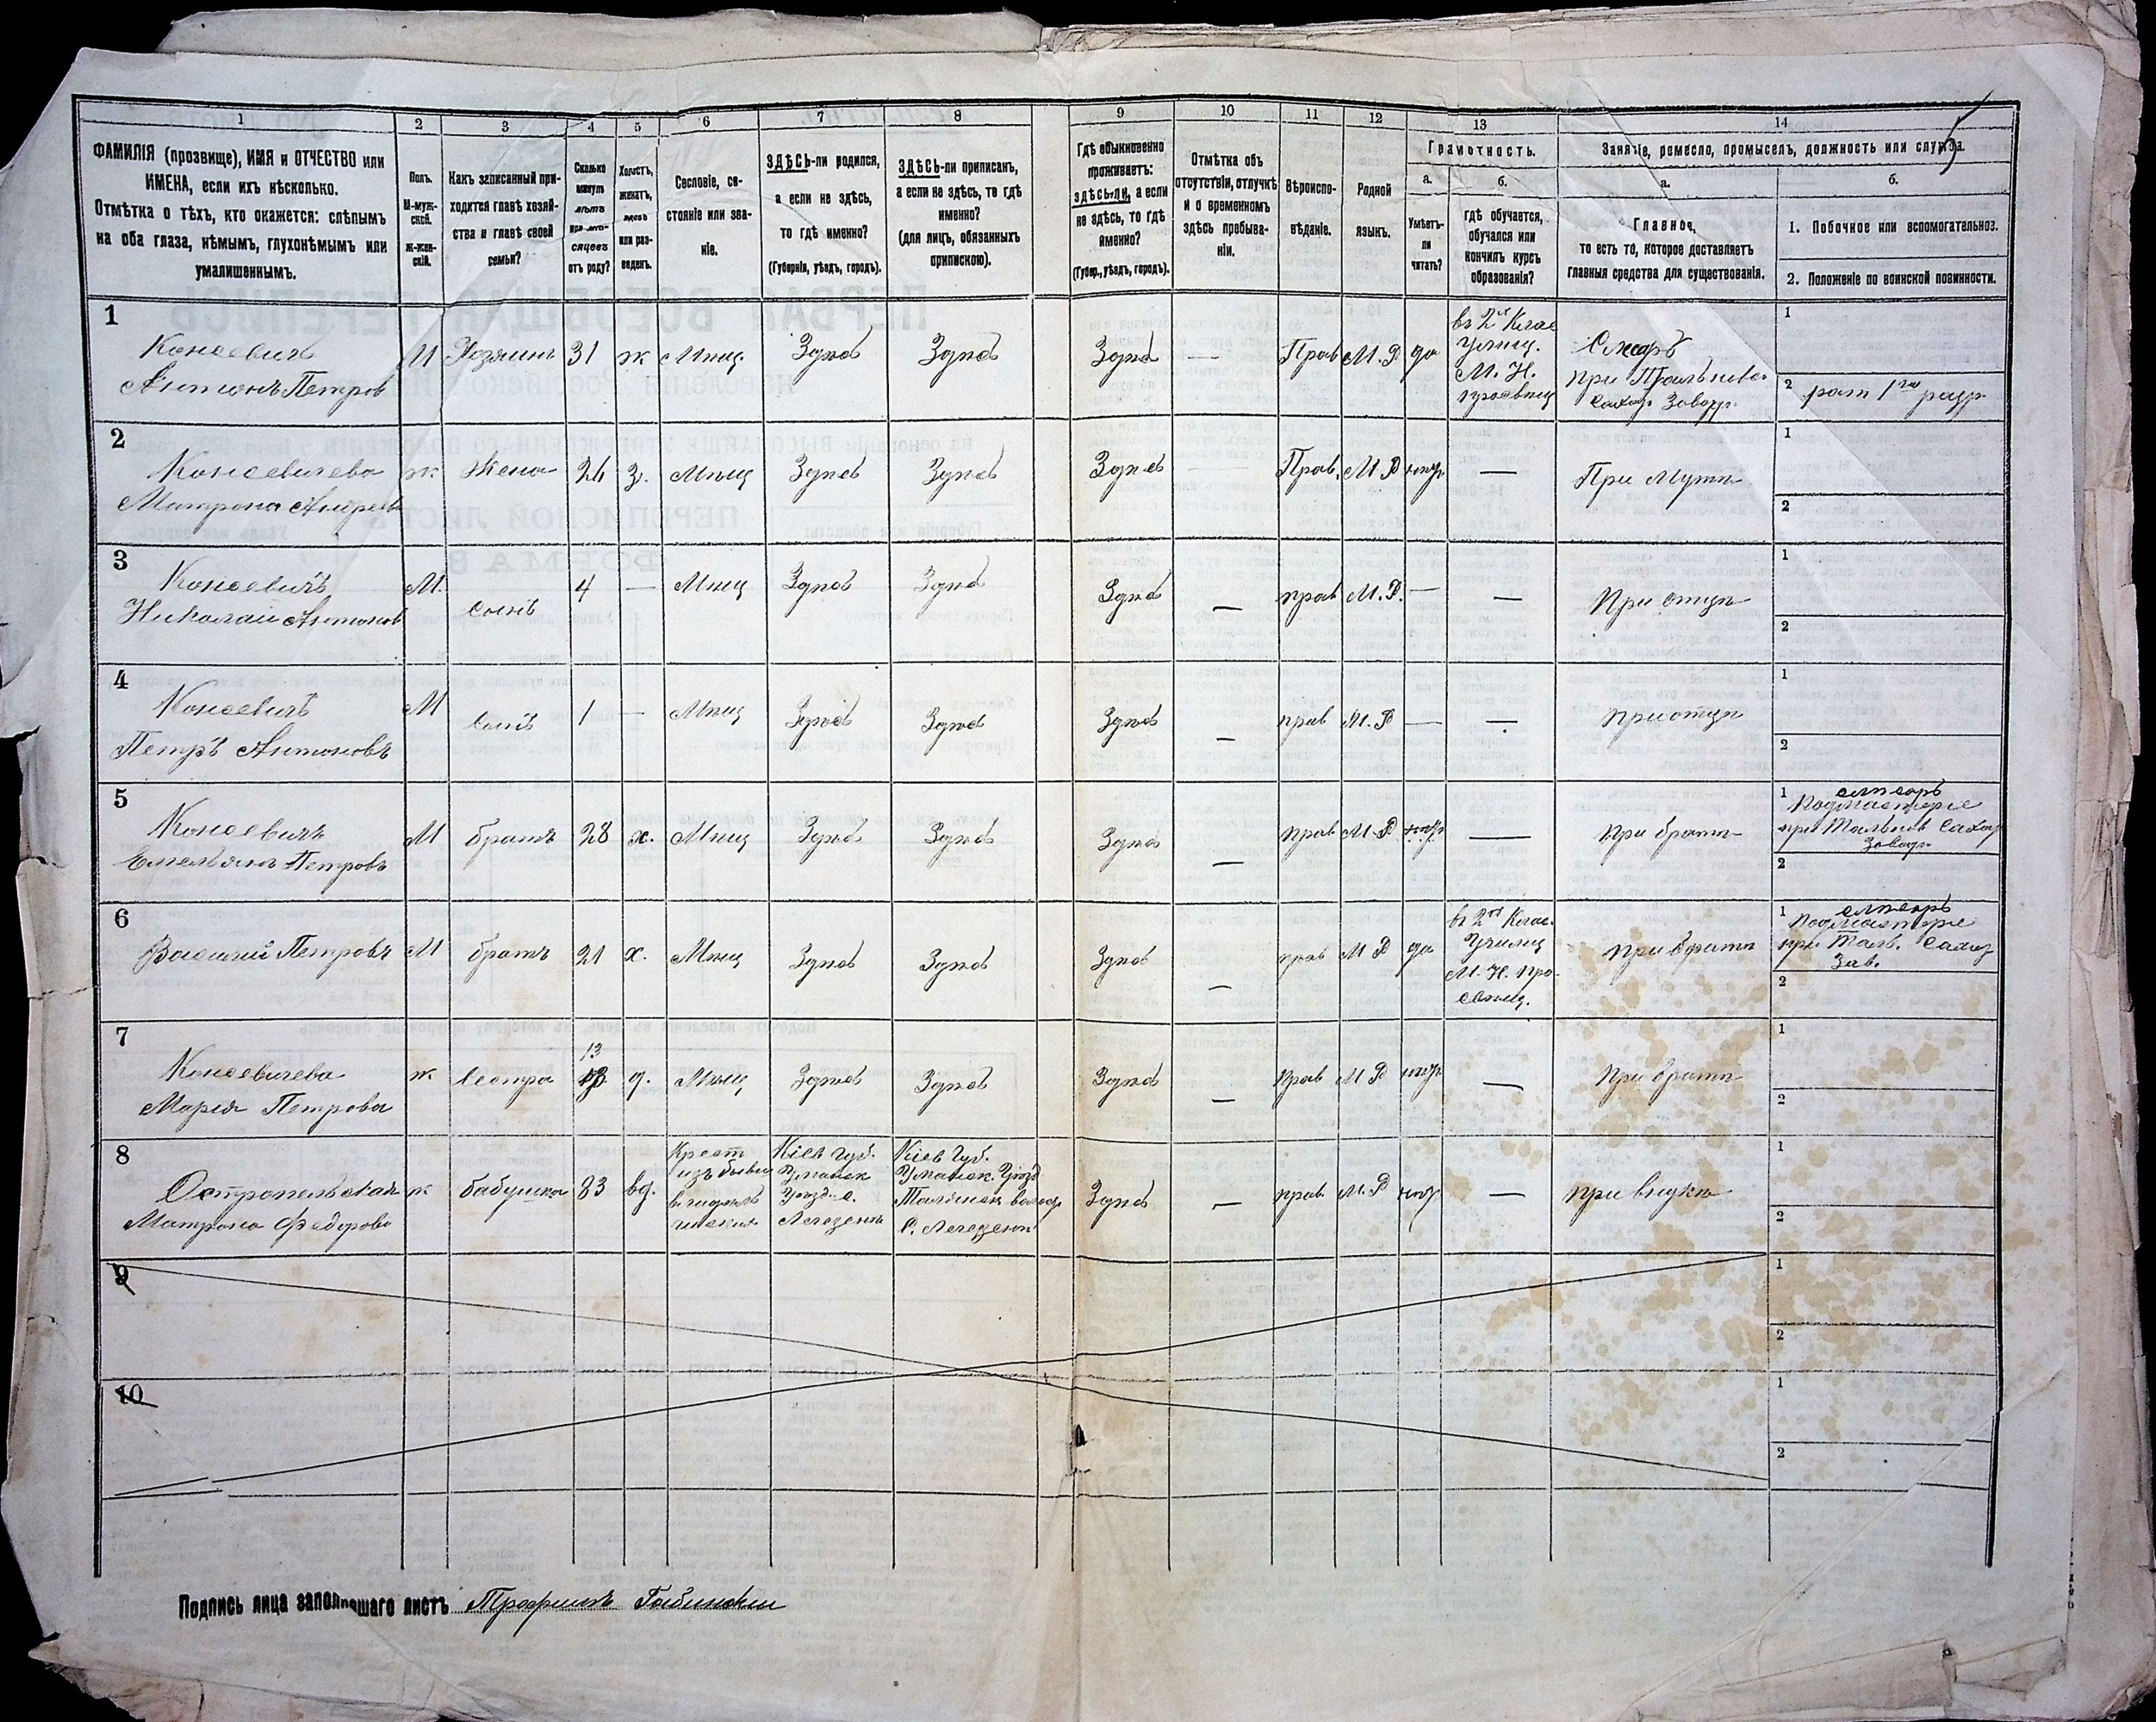 1 2 3 4 5 6 7 8 9 10 11 12 13 14
5
ФАМИЛІЯ (прозвище), ИМЯ и ОТЧЕСТВО или
ИМЕНА, если ихъ нѣсколько.
Отмѣтка о тѣхъ, кто окажется: слѣпымъ
на оба глаза, нѣмымъ, глухонѣмымъ или
умалишеннымъ.
Полъ.
М-муж-
ской.
Ж-жен-
скій.
Какъ записанный при-
ходится главѣ хозяй-
ства и главѣ своей
семьи?
Сколько
минуло
лѣтъ
или мѣ-
сяцевъ
отъ роду?
Холостъ,
женатъ,
вдовъ
или раз-
веденъ.
Сословіе, со-
стояніе или зва-
ніе.
ЗДѢСЬ-ли родился,
а если не здѣсь,
то гдѣ именно?
(Губернія, уѣздъ, городъ).
ЗДѢСЬ-ли приписанъ,
а если не здѣсь, то гдѣ
именно?
(для лицъ, обязанныхъ
припискою).
Гдѣ обыкновенно
проживаетъ:
здѣсь-ли, а если
не здѣсь, то гдѣ
именно?
(Губер., уѣздъ, городъ).
Отмѣтка объ
отсутствіи, отлучкѣ
и о временномъ
здѣсь пребыва-
ніи.
Вѣроиспо-
вѣданіе.
Родной
языкъ.
Грамотность.
а.
Умѣетъ-
ли
читать?
б.
гдѣ обучается,
обучался или
кончилъ курсъ
образованія?
Занятіе, ремесло, промыселъ, должность или служба.
а.
Главное,
то есть то, которое доставляетъ
главныя средства для существованія.
б.
1. Побочное или вспомогательное.
2. Положеніе по воинской повинности.
1
Антонъ Петров
М Хозяинъ 31 ж Мѣщ Здѣсь Здѣсь Здѣсь — Прав М. Р да
въ 2 Клас
Училищ.
М. Н.
просвѣщ
при Тальнов.
Сахар Завод.
1
2 рат 1го разр.
2
Матрона Андреев
ж. Жена 26 з. Мѣщ Здѣсь Здѣсь Здѣсь — Прав. М. Р негр. — При Мужѣ
1
2
3
Николай Антонов
М. сынъ 4 — Мѣщ Здѣсь Здѣсь Здѣсь — прав М. Р. — — При отцѣ
1
2
4
Петръ Антоновъ
М сынъ 1 — Мѣщ Здѣсь Здѣсь Здѣсь — прав М. Р — — При отцѣ
1
2
5
Емельянъ Петровъ
М братъ 28 х. Мѣщ Здѣсь Здѣсь Здѣсь — прав М. Р негр. — при братѣ
1 слесаръ
Подмастерье
при Тальнов Сахар
Завод.
2
6
Василий Петровъ
М братъ 21 х. Мѣщ Здѣсь Здѣсь Здѣсь — прав М Р да
въ 2 Клас.
Училищ
М. Н. Про-
свѣщ.
при братѣ
1 слесаръ
Подмастерье
при Таль. Сахар
Зав.
2
7
Марія Петрова
ж. сестра 13 д. Мѣщ Здѣсь Здѣсь Здѣсь — прав М Р негр — При братѣ
1
2
8
Матрона Федорова
ж. бабушка 83 вд.
Крест
изъ бывш
Кіев Губ.
Уманск
Уѣзд. с.
Легедзенъ
Кіев Губ.
Уманск. Уѣзд
Тальнов волос.
С. Легедзенъ
Здѣсь — прав. М. Р негр. — при внукѣ
1
2
9
1
2
10
1
2
Подпись лица заполнявшаго листъ Трофимъ